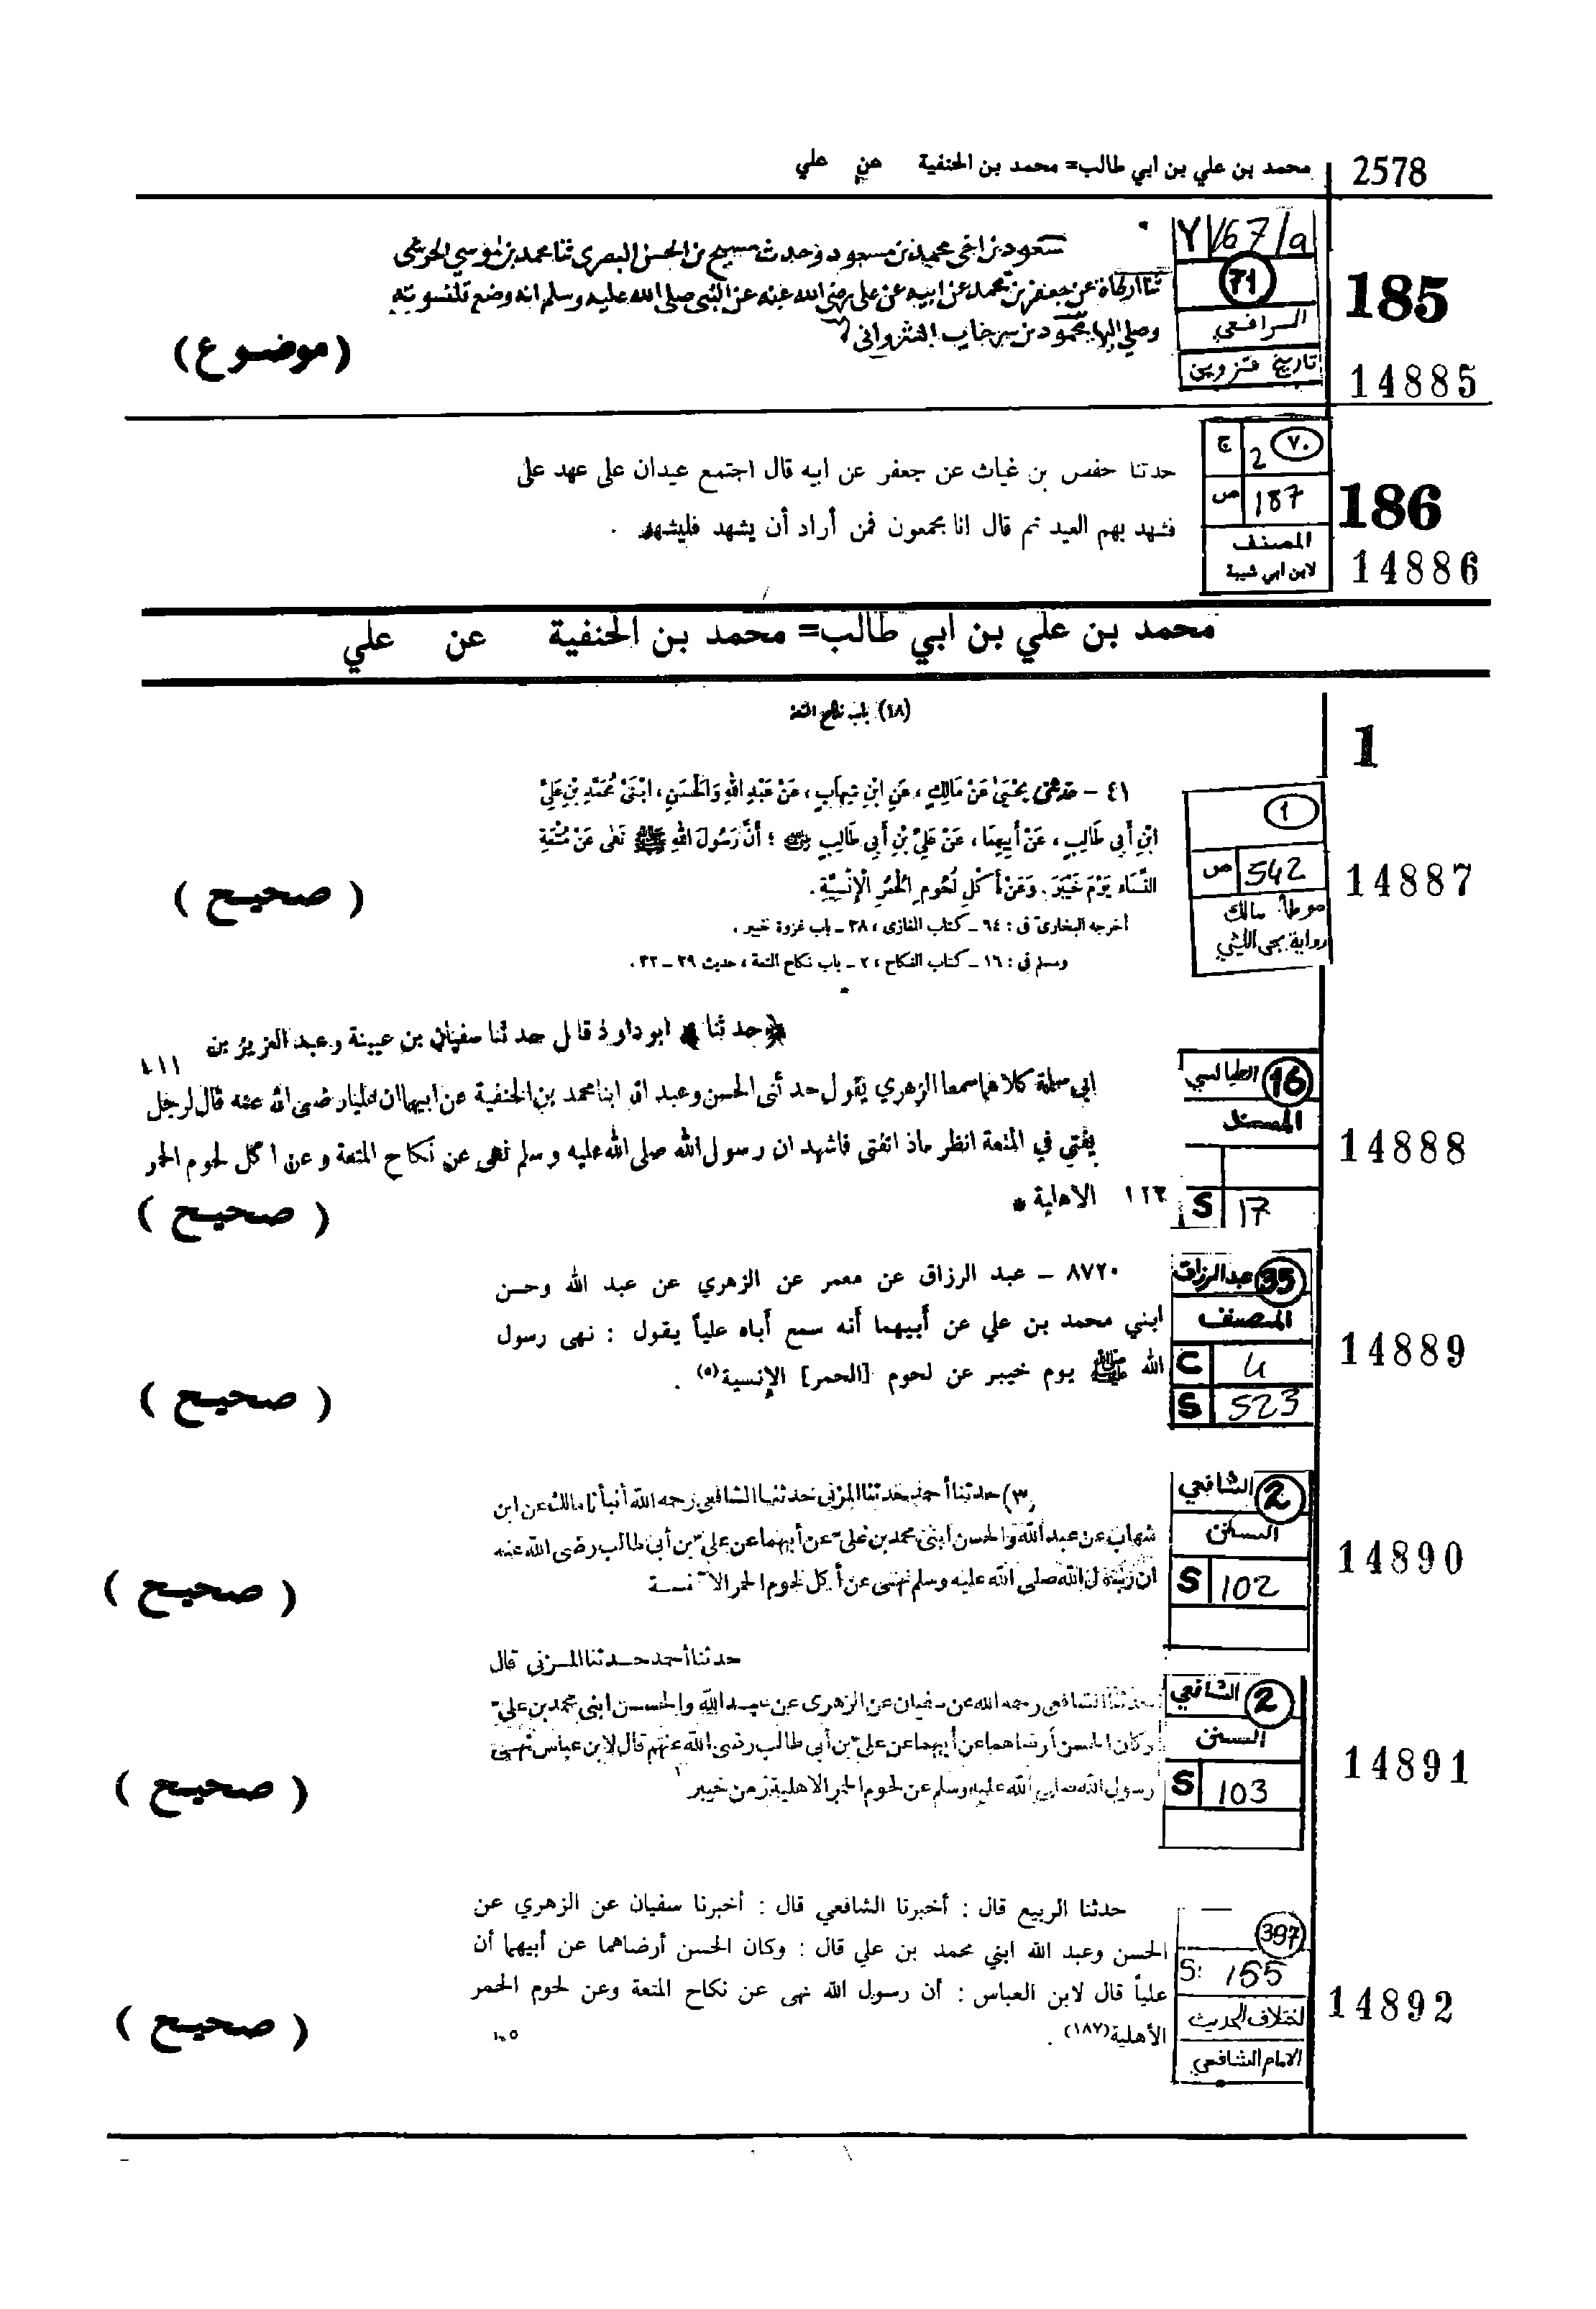 2578 محمد بن علي بن ابي طالب= محمد بن الحنفية عن علي
185
14885
71
الرافعي
تاريخ قزوين
بن اخي محمد بن مسعود وحدث مسبح بن الحسن البصري ثنا محمد بن موسى الحرشي
عن جعفر بن محمد عن ابيه عن علي رضي الله عنه عن النبي صلى الله عليه وسلم انه وضع قلنسوته
وصلى اليها محمود بن
(موضوع)
186
14886
ج 2 ٧٠
ص 187
المصنف
لابن ابي شيبة
حدثنا حفص بن غياث عن جعفر عن ابيه قال اجتمع عيدان على عهد على
فشهد بهم العيد ثم قال انا مجمعون فمن أراد أن يشهد فليشهد .
محمد بن علي بن ابي طالب= محمد بن الحنفية عن علي
1
(١٨) باب نكاح المتعة
14887
1
ص 542
موطأ مالك
رواية يحي الليثي
٤١ – حدثني يَحْيَىٰ عَنْ مَالِكٍ ، عَنِ ابْنِ شِهَابٍ ، عَنْ عَبْدِ اللهِ وَالْحَسَنِ ، ابْنَيْ مُحَمَّدِ بْنِ عَلِيِّ
ابْنِ أَبِي طَالِبٍ ، عَنْ أَبِيهِمَا ، عَنْ عَلِيِّ بْنِ أَبِي طَالِبٍ ؛ أَنَّ رَسُولَ اللهِ ﷺ نَهَى عَنْ مُتْعَةِ
النِّسَاءِ يَوْمَ خَيْبَرَ . وَعَنْ أَكْلِ لُحُومِ الْحُمُرِ الْإِنْسِيَّةِ .
أخرجه البخارى فى : ٦٤ – كتاب المغازى ، ٣٨ – باب غزوة خيبر .
ومسلم فى : ١٦ – كتاب النكاح ، ٢ – باب نكاح المتعة ، حديث ٢٩ – ٣٢ .
(صحيح)
14888
16 الطيالسي
المسند
S 17
حدثنا ابو داود قال حدثنا سفيان بن عيينة وعبد العزيز بن
ابي سلمة كلاهما سمعا الزهري يقول حدثنى الحسن وعبد الله ابنا محمد بن الحنفية عن ابيهما ان عليا رضى الله عنه قال لرجل
يفتي في المتعة انظر ماذا تفتى فاشهد ان رسول الله صلى الله عليه وسلم نهى عن نكاح المتعة وعن اكل لحوم الحمر
الاهلية *
(صحيح)
14889
35 عبد الرزاق
المصنف
C 4
S 523
٨٧٢٠ – عبد الرزاق عن معمر عن الزهري عن عبد الله وحسن
ابني محمد بن علي عن أبيهما أنه سمع أباه علياً يقول : نهى رسول
الله ﷺ يوم خيبر عن لحوم [الحمر] الإنسية(٥) .
(صحيح)
14890
2 الشافعي
السنن
S 102
(٣) حدثنا أحمد حدثنا المزنى حدثنا الشافعى رحمه الله أنبأنا مالك عن ابن
شهاب عن عبد الله والحسن ابنى محمد بن على عن أبيهما عن على بن أبى طالب رضى الله عنه
ان رسول الله صلى الله عليه وسلم نهى عن أكل لحوم الحمر الانسية
(صحيح)
14891
2 الشافعي
السنن
S 103
حدثنا أحمد حدثنا المزنى قال
حدثنا الشافعى رحمه الله عن سفيان عن الزهرى عن عبد الله والحسن ابنى محمد بن على
وكان الحسن أرضاهما عن أبيهما عن على بن أبى طالب رضى الله عنهم قال لابن عباس نهى
رسول الله صلى الله عليه وسلم عن لحوم الحمر الاهلية زمن خيبر
(صحيح)
14892
397
S: 155
اختلاف الحديث
الامام الشافعي
حدثنا الربيع قال : أخبرنا الشافعي قال : أخبرنا سفيان عن الزهري عن
الحسن وعبد الله ابني محمد بن علي قال : وكان الحسن أرضاهما عن أبيهما أن
علياً قال لابن العباس : أن رسول الله نهى عن نكاح المتعة وعن لحوم الحمر
الأهلية(١٨٧) .
(صحيح)